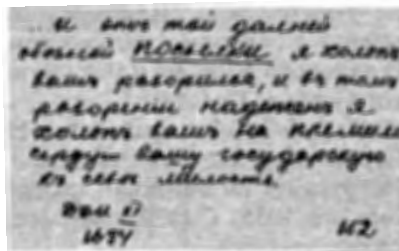 .. и отъ той далней
обычной посылки я холопъ
вашъ разорился, и въ томъ
разореніи надеженъ я
холопъ вашъ на премило
сердую вашу государскую
къ себѣ милость.
152